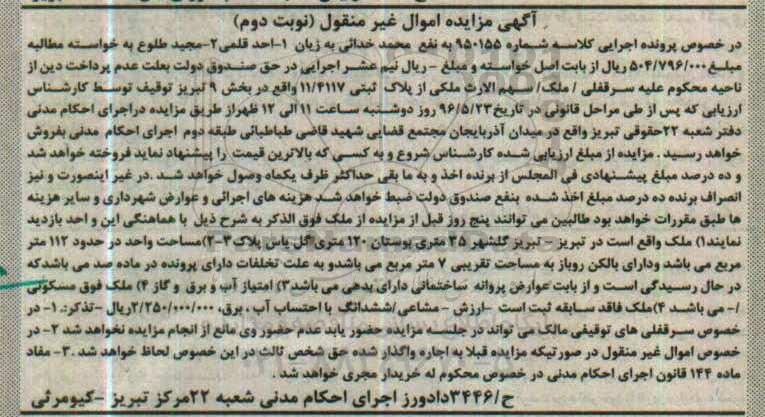 آگهی مزایده اموال غیر منقول (نوبت دوم)
در خصوص پرونده اجرایی کلاسه شماره ۹۵۰۱۵۵ به نفع محمد خدائی به زیان ۱-احد قلمی۲-مجید طلوع به خواسته مطالبه
مبلغ ۵۰۴/۷۹۶/۰۰۰ ریال از بابت اصل خواسته و مبلغ – ریال نیم عشر اجرایی در حق صندوق دولت بعلت عدم پرداخت دین از
ناحیه محکوم علیه سرقفلی / ملک/ سهم الارث ملکی از پلاک ثبتی ۱۱/۴۱۱۷ واقع در بخش ۹ تبریز توقیف توسط کارشناس
ارزیابی که پس از طی مراحل قانونی در تاریخ۹۶/۵/۲۳ روز دوشنبه ساعت ۱۱ الی ۱۲ ظهراز طریق مزایده دراجرای احکام مدنی
دفتر شعبه ۲۲حقوقی تبریز واقع در میدان آذربایجان مجتمع قضایی شهید قاضی طباطبائی طبقه دوم اجرای احکام مدنی بفروش
خواهد رسید . مزایده از مبلغ ارزیابی شده کارشناس شروع و به کسی که بالاترین قیمت را پیشنهاد نماید فروخته خواهد شد
و ده درصد مبلغ پیشنهادی فی المجلس از برنده اخذ و به ما بقی حداکثر ظرف یکماه وصول خواهد شد .در غیر اینصورت و نیز
انصراف برنده ده درصد مبلغ اخذ شده بنفع صندوق دولت ضبط خواهد شد هزینه های اجرائی و عوارض شهرداری و سایر هزینه
ها طبق مقررات خواهد بود طالبین می توانند پنج روز قبل از مزایده از ملک فوق الذکر به شرح ذیل با هماهنگی این و احد بازدید
نمایند۱) ملک واقع است در تبریز – تبریز گلشهر ۳۵ متری بوستان ۱۲۰متری گل یاس پلاک۳-۲)مساحت واحد در حدود ۱۱۲ متر
مربع می باشد ودارای بالکن روباز به مساحت تقریبی ۷ متر مربع می باشدو به علت تخلفات دارای پرونده در ماده صد می باشدکه
در حال رسیدگی است و از بابت عوارض پروانه ساختمانی دارای بدهی می باشد۳) امتیاز آب و برق و گاز ۴) ملک فوق مسکونی
/- می باشد ۴)ملک فاقد سابقه ثبت است –ارزش –مشاعی/ششدانگ با احتساب آب ، برق، ۲/۲۵۰/۰۰۰/۰۰۰ریال –تذکر: ۱- در
خصوص سرقفلی های توقیفی مالک می تواند در جلسه مزایده حضور یابد عدم حضور وی مانع از انجام مزایده نخواهد شد ۲- در
خصوص اموال غیر منقول در صورتیکه مزایده قبلا به اجاره واگذار شده حق شخص ثالث در این خصوص لحاظ خواهد شد .۳- مفاد
ماده ۱۴۴ قانون اجرای احکام مدنی در خصوص محکوم له خریدار مجری خواهد شد .
ح/۳۴۴۶دادورز اجرای احکام مدنی شعبه ۲۲مرکز تبریز –کیومرثی